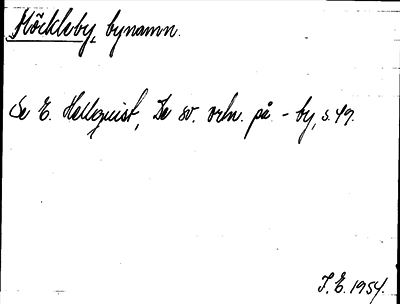 Möckleby, bynamn.
Se E. Hellquist, De sv. ortn. på -by, s. 49.
I. E. 1954.